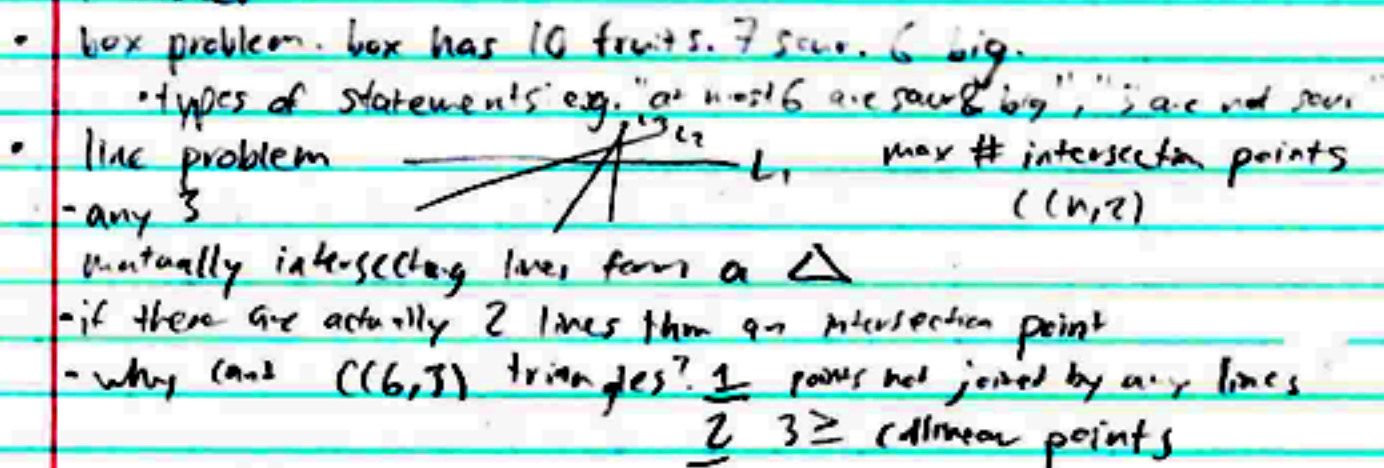 • box problem. box has 10 fruits. 7 sour. 6 big.
• types of statements e.g. "at most 6 are sour & big", "3 are not sour"
• line problem L3 L2 L1 max # intersection points
- any 3 C(n,2)
mutually intersecting lines form a △
- if there are actually 2 lines thru an intersection point
- why C(6,3) triangles? 1 points not joined by any lines
2 3≥ collinear points